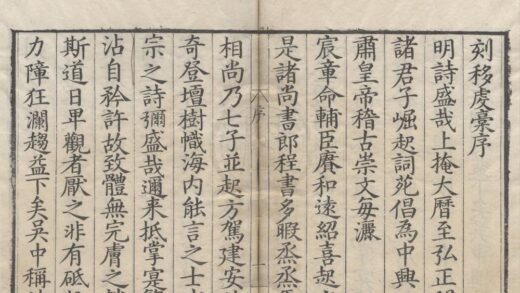 刻移虔稾序
明詩盛哉上掩大曆至弘正
諸君子崛起詞苑倡為中興
肅皇帝稽古崇文每灑
宸章命輔臣賡和遠紹喜起
是諸尚書郎程書多暇烝烝
序
相尚乃七子並起方駕建安
奇登壇樹幟海内能言之士
宗之詩彌盛哉邇来抵掌寔
沾自矜許故致體無完膚之
斯道日卑觀者厭之非有砥
力障狂瀾趨益下矣吳中稱